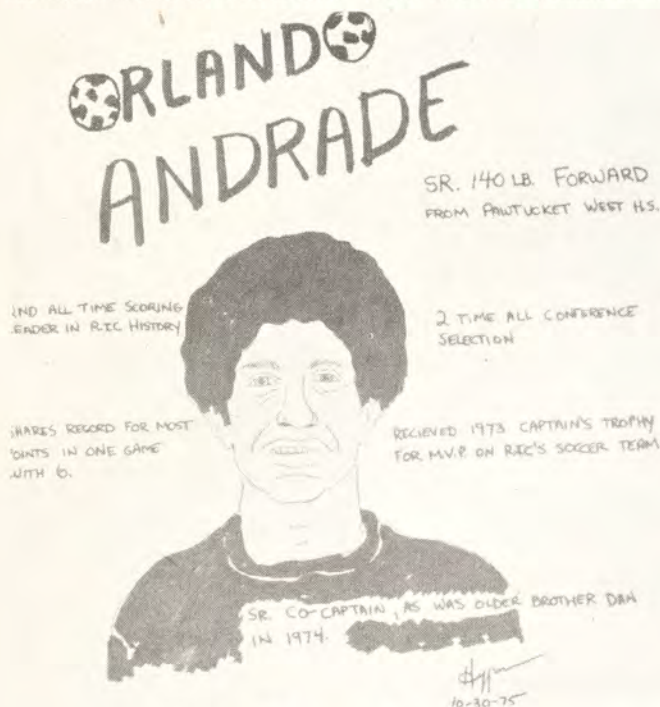 ORLANDO
ANDRADE
SR. 140 LB. FORWARD
FROM PAWTUCKET WEST H.S.
2ND ALL TIME SCORING
EADER IN RIC HISTORY
2 TIME ALL CONFERENCE
SELECTION
HARES RECORD FOR MOST
OINTS IN ONE GAME
WITH 6.
RECIEVED 1973 CAPTAIN'S TROPHY
FOR M.V.P. ON RIC'S SOCCER TEAM
SR. CO-CAPTAIN, AS WAS OLDER BROTHER DAN
IN 1974.
10-30-75